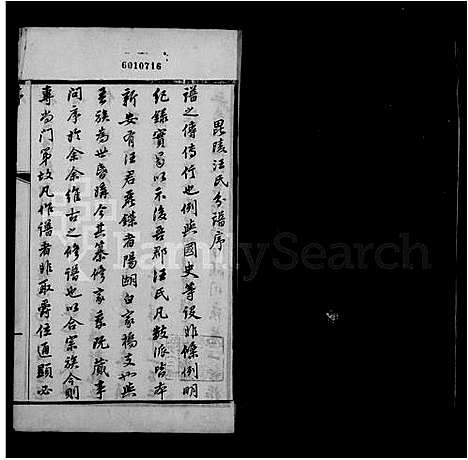 6010716
毘陵汪氏分譜序
譜之傳傳行也例與國史等設非條例明
紀錄實曷以示後吾郡汪氏凡數派皆本
新安有汪君彥鏶者陽湖白家橋支也與
吾族為世昏媾今其纂修家乘既蕆事
問序於余余維古之修譜也以合宗族今則
專尚門第故凡作譜者非取爵位通顯必
FamilySearch